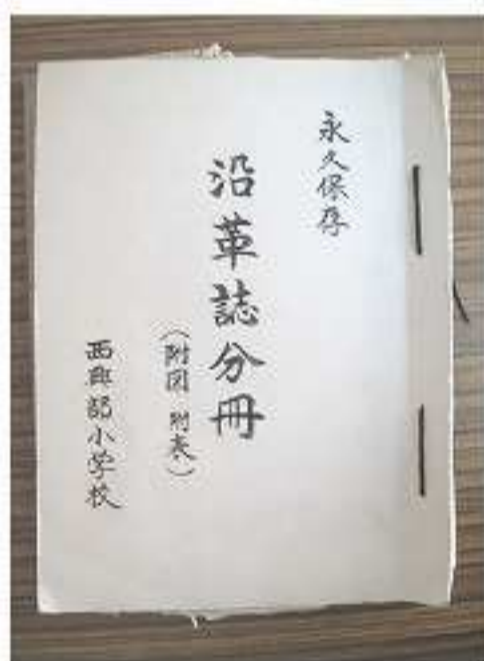 永久保存
沿革誌分冊
(附図 附表)
西興部小学校